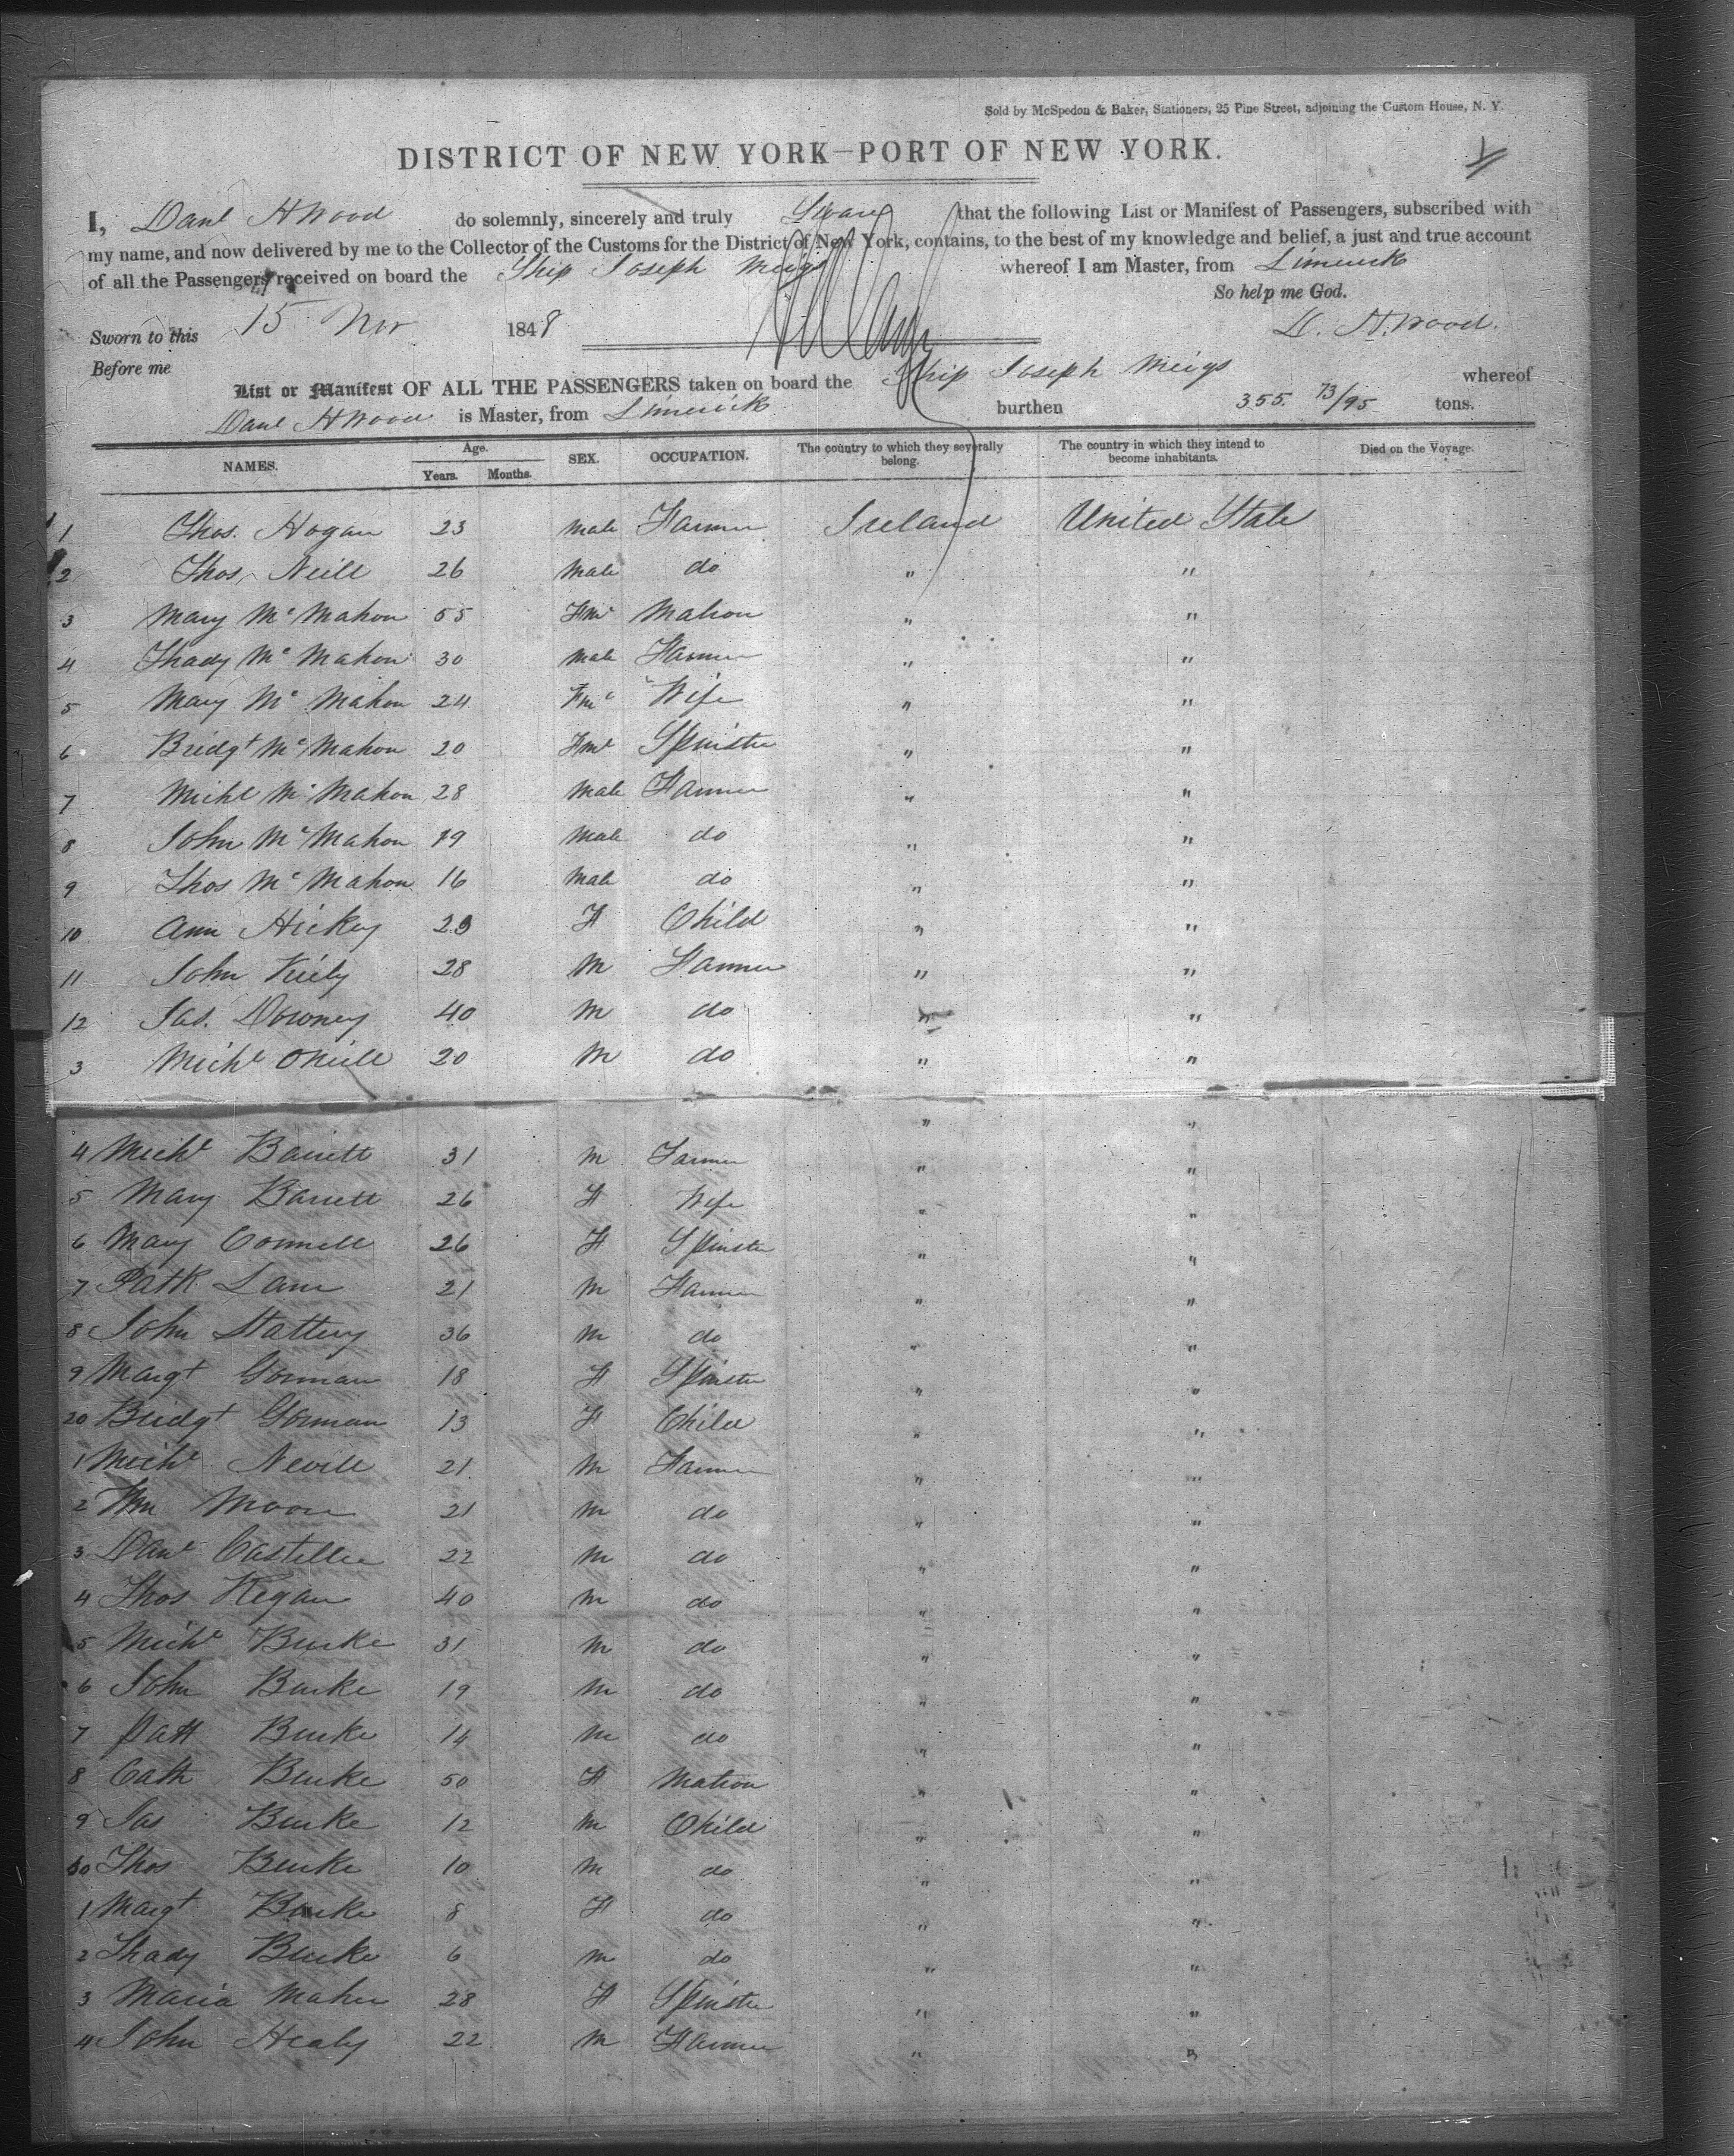 Sold by McSpedon & Baker, Stationers, 25 Pine Street, adjoining the Custom House, N. Y.
DISTRICT OF NEW YORK—PORT OF NEW YORK.
I, Danl H Wood do solemnly, sincerely and truly Swear that the following List or Manifest of Passengers, subscribed with
my name, and now delivered by me to the Collector of the Customs for the District of New York, contains, to the best of my knowledge and belief, a just and true account
of all the Passengers received on board the Ship Joseph Meigs whereof I am Master, from Limerick
So help me God.
Sworn to this 15 Nov 1848 D. H. Wood.
Before me
List or Manifest OF ALL THE PASSENGERS taken on board the Ship Joseph Meigs whereof
Danl H Wood is Master, from Limerick burthen 355. 73/95 tons.
NAMES. Age. Years. Months. SEX. OCCUPATION. The country to which they severally belong. The country in which they intend to become inhabitants. Died on the Voyage.
1 Thos. Hogan 23 Male Farmer Ireland United State
2 Thos Neill 26 Male do " "
3 Mary Mc Mahon 55 Fmc Matron " "
4 Thady Mc Mahon 30 Male Farmer " "
5 Mary Mc Mahon 24 Fmc Wife " "
6 Bridgt Mc Mahon 20 Fmc Spinster " "
7 Michl Mc Mahon 28 Male Farmer " "
8 John Mc Mahon 19 Male do " "
9 Thos Mc Mahon 16 Male do " "
10 Ann Hickey F Child " "
11 John Kiely 28 M Farmer " "
12 Jas. Downey 40 M do " "
3 Michl ONeill 20 M do " "
" "
4 Michl Barrett 31 M Farmer " "
5 Mary Barrett 26 F Wife " "
6 Mary Connell 26 F Spinster " "
7 Patk Lane 21 M Farmer " "
8 John Slattery 36 M do " "
9 Margt Gorman 18 F Spinster " "
20 Bridgt Gorman 13 F Child " "
1 Michl Nevill 21 M Farmer " "
2 Wm Moore 21 M do " "
3 Danl Castelloe 22 M do " "
4 Thos Regan 40 M do " "
5 Michl Burke 31 M do " "
6 John Burke 19 M do " "
7 Patt Burke 14 M do " "
8 Cath Burke 50 F Matron " "
9 Jas Burke 12 M Child " "
30 Thos Burke 10 M do " "
1 Margt Burke 8 F do " "
2 Thady Burke 6 M do " "
3 Maria Maher 28 F Spinster " "
4 John Healy 22 M Farmer " "